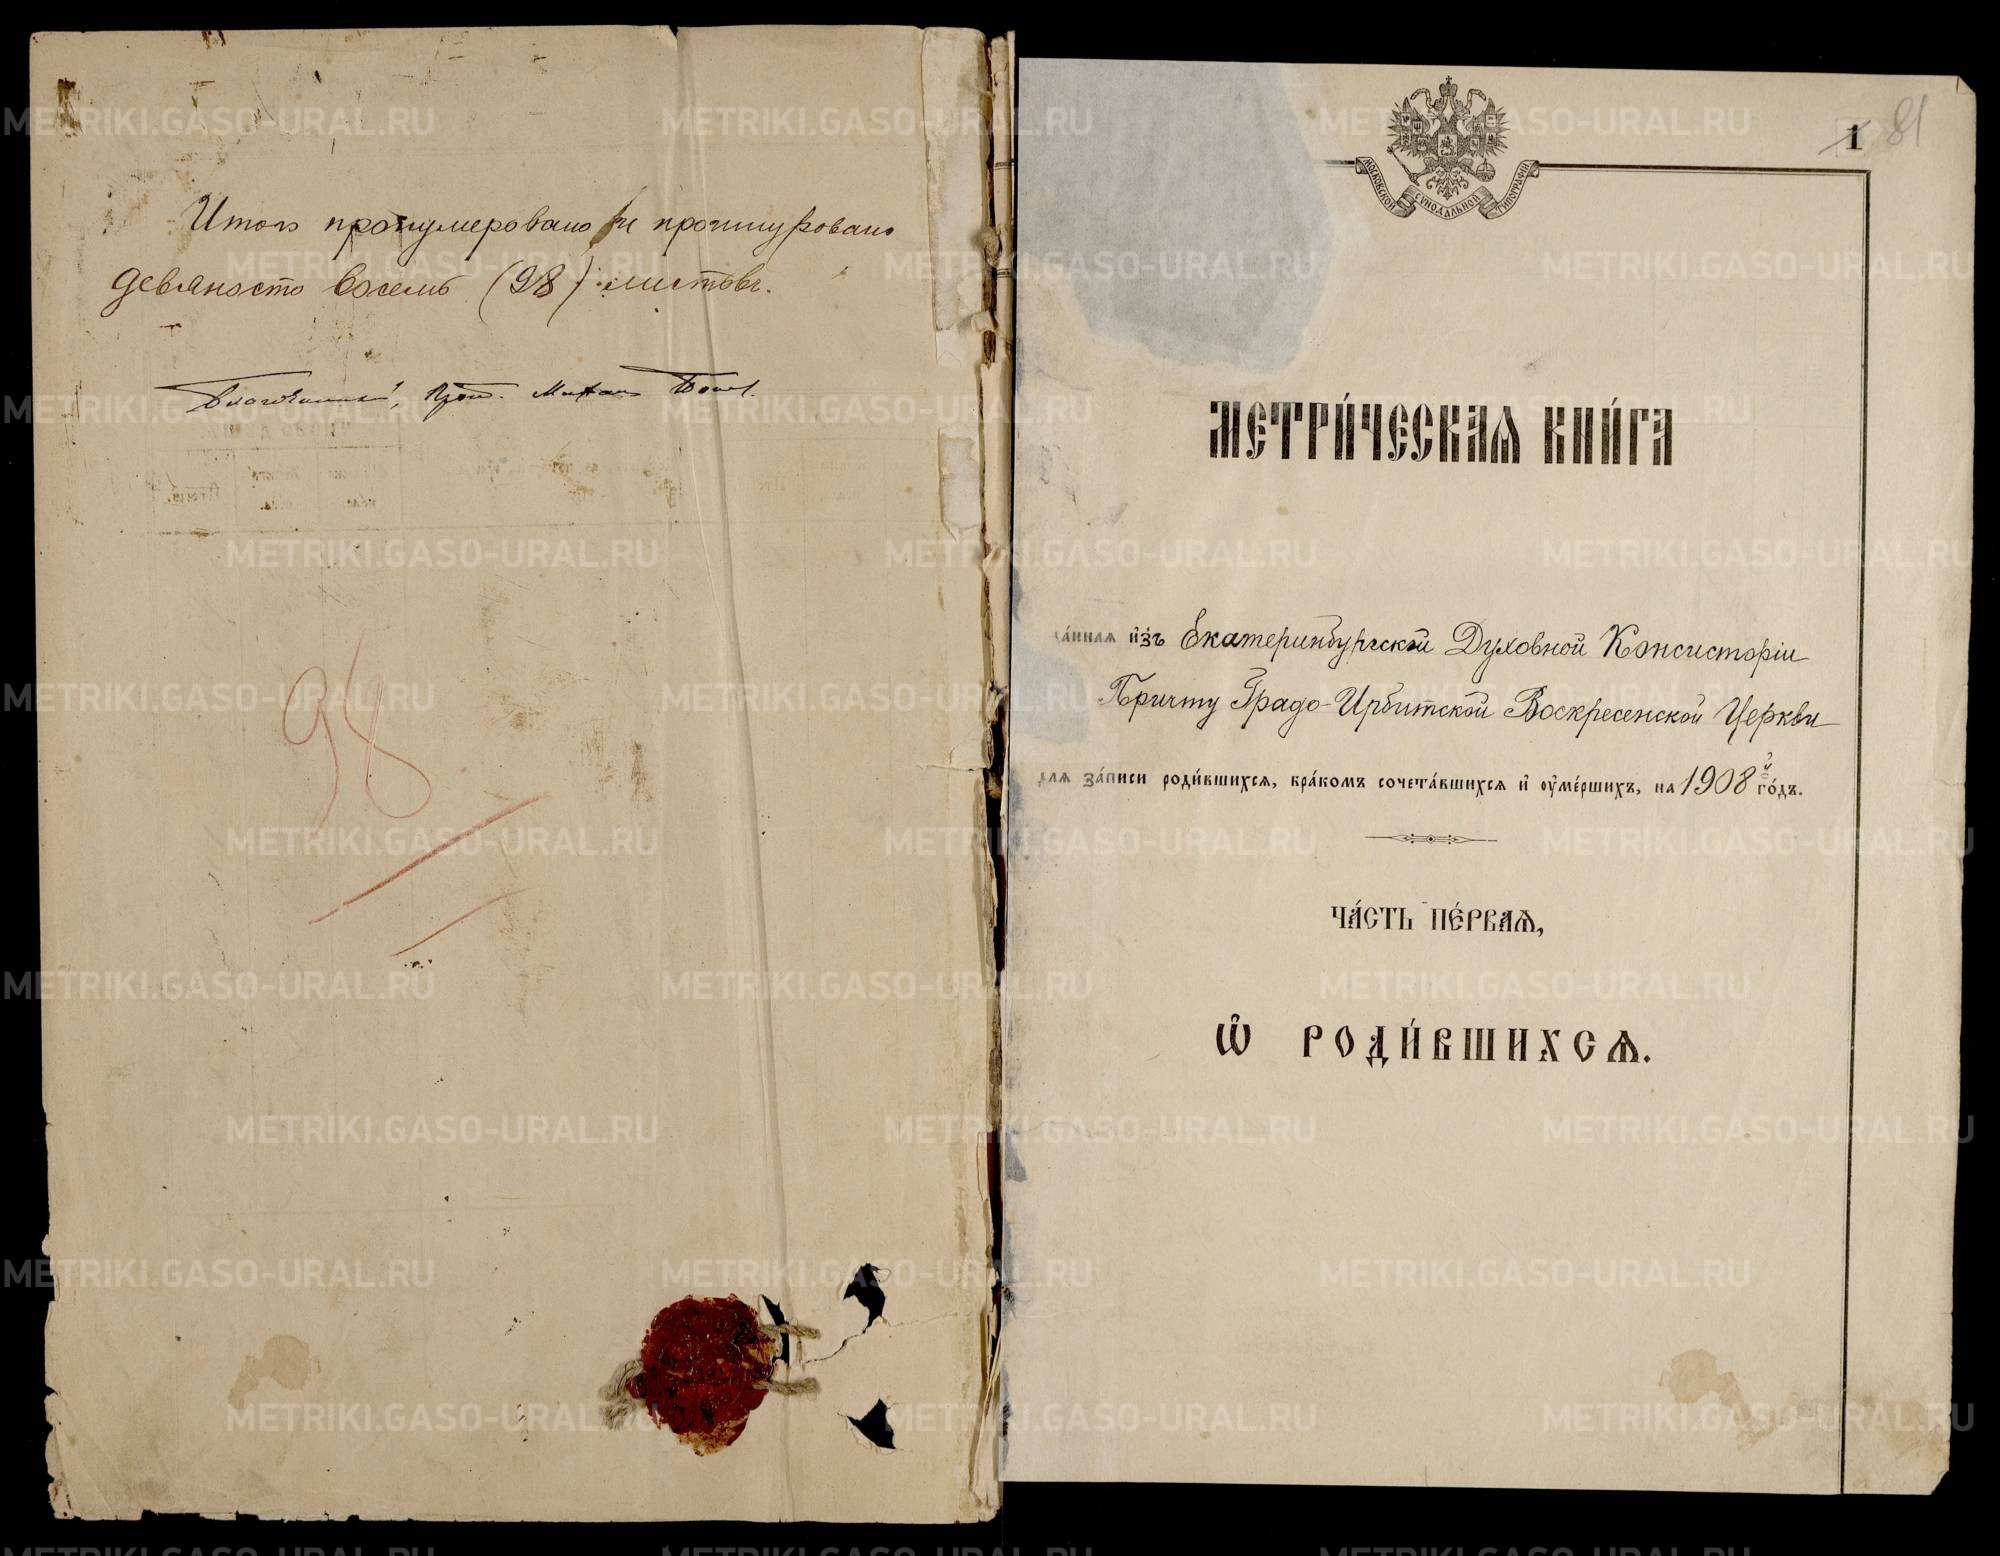 Итого пронумеровано и прошнуровано
девяносто восемь (98) листовъ.
Благочинный, Прот. Михаилъ
98
МОСКОВСКОЙ СѴНОДАЛЬНОЙ ТИПОГРАФІИ
1 81
МЕТРИ́ЧЕСКАѦ КНИ́ГА
да́ннаѧ и҆зъ Екатеринбургской Духовной Консисторіи
Причту Градо-Ирбитской Воскресенской Церкви
для за́писи роди́вшихсѧ, бра́комъ сочета́вшихсѧ и҆ оу҆ме́ршихъ, на 1908й го́дъ.
ЧА́СТЬ ПЕ́РВАѦ,
Ѡ҆ РОДИ́ВШИХСѦ.
METRIKI.GASO-URAL.RU